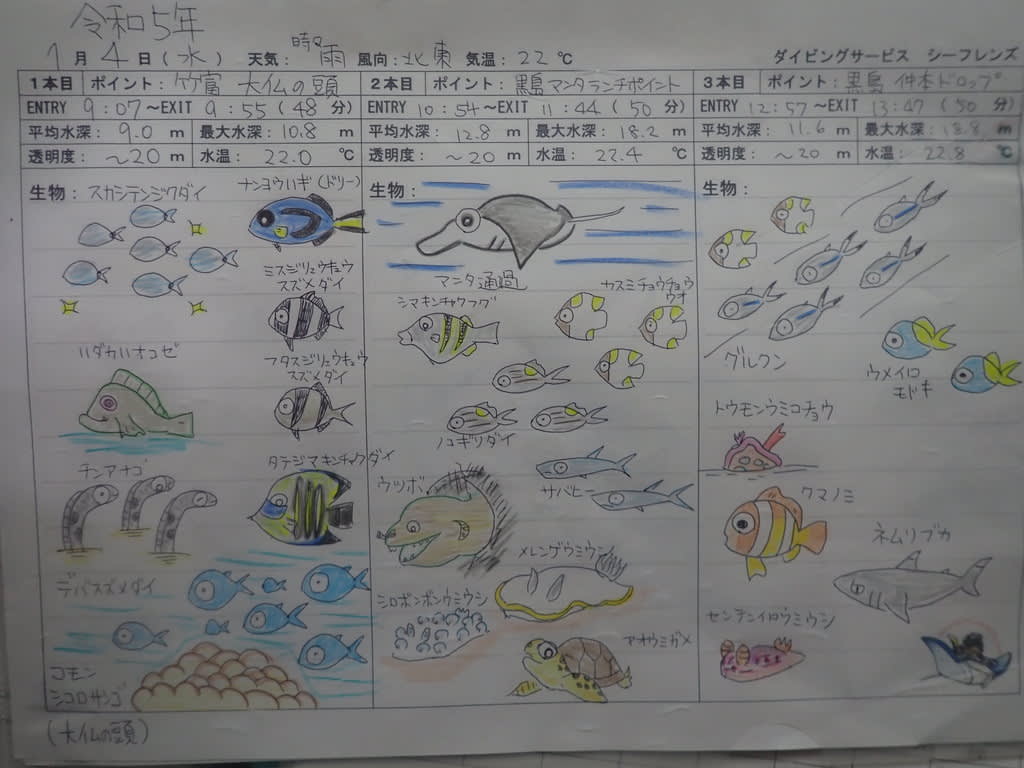 令和5年
1月4日(水) 天気:時々雨 風向:北東 気温:22℃ ダイビングサービス シーフレンズ
1本目 ポイント:竹富 大仏の頭
ENTRY 9:07~EXIT 9:55(48分)
平均水深:9.0m 最大水深:10.8m
透明度:~20m 水温:22.0℃
生物:スカシテンジクダイ
ナンヨウハギ(ドリー)
ミスジリュウキュウ
スズメダイ
ハダカハオコゼ
フタスジリュウキュウ
スズメダイ
チンアナゴ
タテジマキンチャクダイ
デバスズメダイ
コモン
シコロサンゴ
(大仏の頭)
2本目 ポイント:黒島マンタランチポイント
ENTRY 10:54~EXIT 11:44(50分)
平均水深:12.8m 最大水深:18.2m
透明度:~20m 水温:22.4℃
生物:
マンタ通過
シマキンチャクフグ
カスミチョウチョウ
ウオ
ノコギリダイ
ウツボ
サバヒー
メレンゲウミウシ
シロボンボンウミウシ
アオウミガメ
3本目 ポイント:黒島 仲本ドロップ
ENTRY 12:57~EXIT 13:47(50分)
平均水深:11.6m 最大水深:18.8m
透明度:~20m 水温:22.8℃
生物:
グルクン
ウメイロ
モドキ
トウモンウミコチョウ
クマノミ
ネムリブカ
センテンイロウミウシ